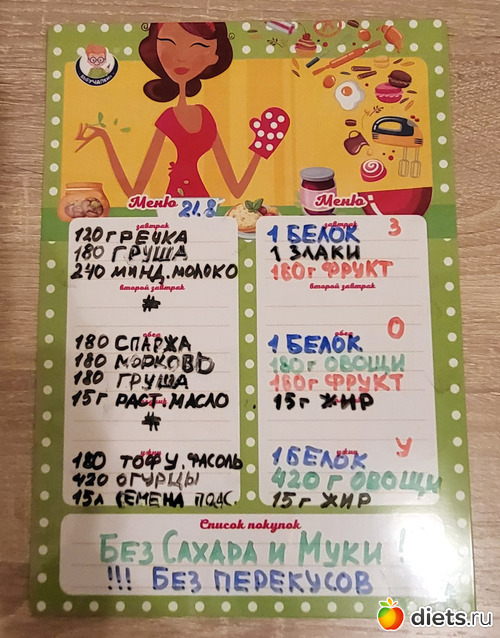 ВЫРУЧАЛКИН
Меню 21.8
завтрак
120 ГРЕЧКА
180 ГРУША
240 МИНД. МОЛОКО
второй завтрак
#
обед
180 СПАРЖА
180 МОРКОВЬ
180 ГРУША
15г РАСТ. МАСЛО
#
ужин
180 ТОФУ, ФАСОЛЬ
420 ОГУРЦЫ
15л СЕМЕНА ПОДС.
Меню
завтрак З
1 БЕЛОК
1 ЗЛАКИ
180г ФРУКТ
второй завтрак
обед О
1 БЕЛОК
180г ОВОЩИ
180г ФРУКТ
15г ЖИР
ужин У
1 БЕЛОК
420 г ОВОЩИ
15г ЖИР
Список покупок
БЕЗ САХАРА И МУКИ !
!!! БЕЗ ПЕРЕКУСОВ
diets.ru